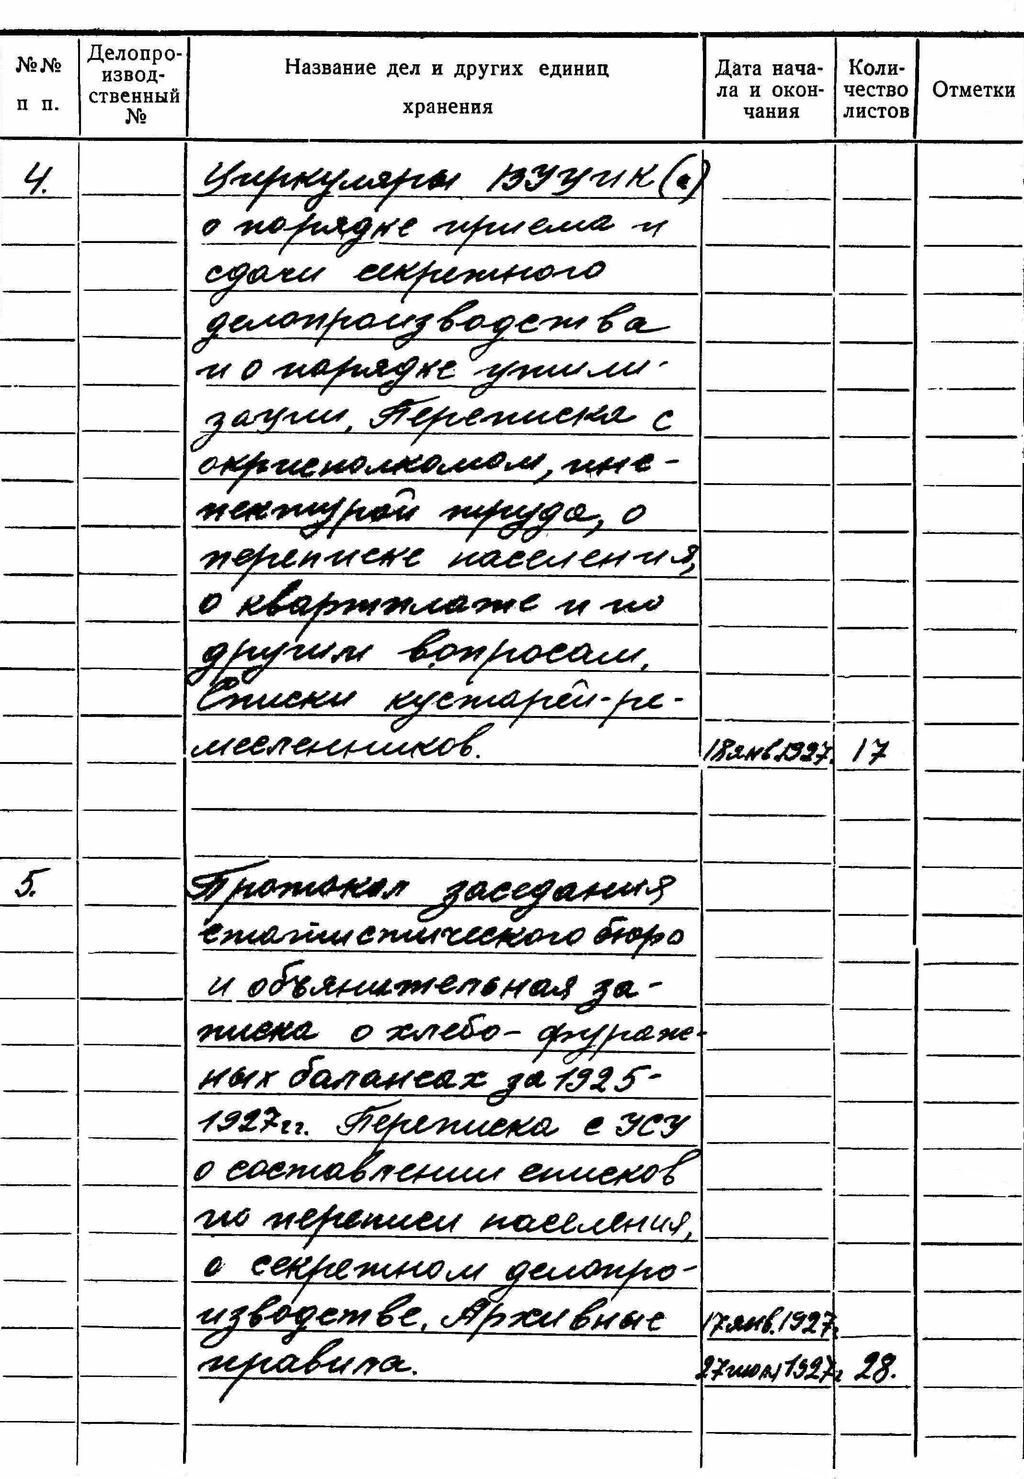 №№ п п.
Делопро-
извод-
ственный
№
Название дел и других единиц
хранения
Дата нача-
ла и окон-
чания
Коли-
чество
листов
Отметки
4. Циркуляры ВУЦИК(а)
о порядке приема и
сдачи секретного
делопроизводства
и о порядке утили-
зации. Переписка с
окрисполкомом, инс-
пектурой труда, о
переписке населения,
о квартплате и по
другим вопросам.
Списки кустарей-ре-
месленников. 18 янв. 1927г. 17
5. Протокол заседания
статистического бюро
и объянительная за-
писка о хлебо-фураж-
ных балансах за 1925-
1927гг. Переписка с УСУ
о составлении списков
по переписи населения,
о секретном делопро-
изводстве. Архивные 17 янв. 1927г.
правила. 27 июля 1927г 28.